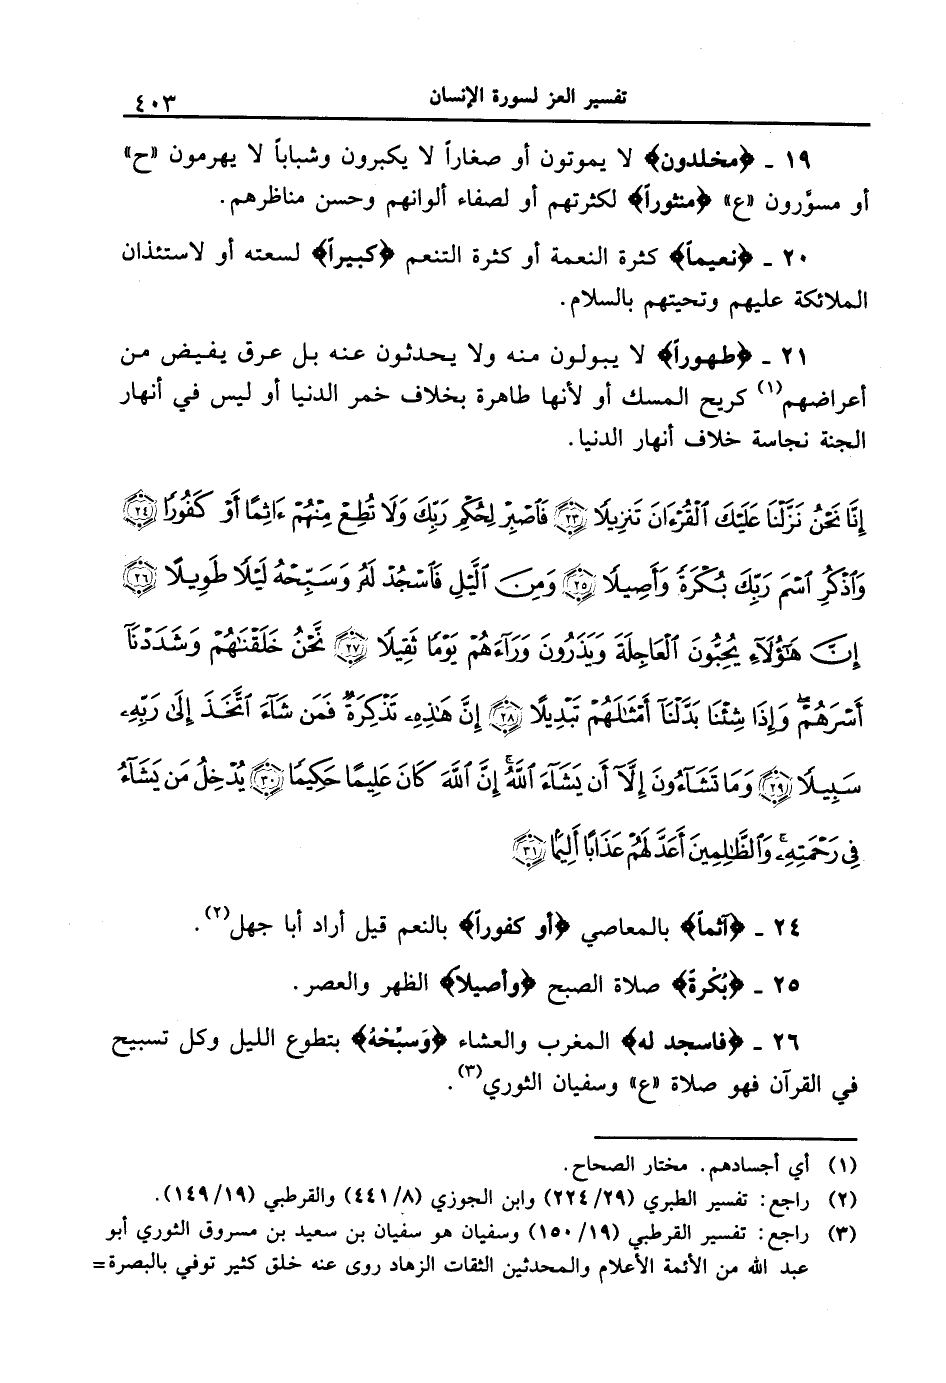 تفسير العز لسورة الإنسان
٤٠٣
١٩ ـ ﴿مخلدون﴾ لا يموتون أو صغاراً لا يكبرون وشباباً لا يهرمون «ح»
أو مسوَّرون «ع» ﴿منثوراً﴾ لكثرتهم أو لصفاء ألوانهم وحسن مناظرهم.
٢٠ ـ ﴿نعيماً﴾ كثرة النعمة أو كثرة التنعم ﴿كبيراً﴾ لسعته أو لاستئذان
الملائكة عليهم وتحيتهم بالسلام.
٢١ ـ ﴿طهوراً﴾ لا يبولون منه ولا يحدثون عنه بل عرق يفيض من
أعراضهم(١) كريح المسك أو لأنها طاهرة بخلاف خمر الدنيا أو ليس في أنهار
الجنة نجاسة خلاف أنهار الدنيا.
إِنَّا نَحْنُ نَزَّلْنَا عَلَيْكَ ٱلْقُرْءَانَ تَنزِيلًا ٢٣ فَٱصْبِرْ لِحُكْمِ رَبِّكَ وَلَا تُطِعْ مِنْهُمْ ءَاثِمًا أَوْ كَفُورًا ٢٤
وَٱذْكُرِ ٱسْمَ رَبِّكَ بُكْرَةً وَأَصِيلًا ٢٥ وَمِنَ ٱلَّيْلِ فَٱسْجُدْ لَهُۥ وَسَبِّحْهُ لَيْلًا طَوِيلًا ٢٦
إِنَّ هَٰٓؤُلَآءِ يُحِبُّونَ ٱلْعَاجِلَةَ وَيَذَرُونَ وَرَآءَهُمْ يَوْمًا ثَقِيلًا ٢٧ نَّحْنُ خَلَقْنَٰهُمْ وَشَدَدْنَآ
أَسْرَهُمْ ۖ وَإِذَا شِئْنَا بَدَّلْنَآ أَمْثَٰلَهُمْ تَبْدِيلًا ٢٨ إِنَّ هَٰذِهِۦ تَذْكِرَةٌ ۖ فَمَن شَآءَ ٱتَّخَذَ إِلَىٰ رَبِّهِۦ
سَبِيلًا ٢٩ وَمَا تَشَآءُونَ إِلَّآ أَن يَشَآءَ ٱللَّهُ ۚ إِنَّ ٱللَّهَ كَانَ عَلِيمًا حَكِيمًا ٣٠ يُدْخِلُ مَن يَشَآءُ
فِى رَحْمَتِهِۦ ۚ وَٱلظَّٰلِمِينَ أَعَدَّ لَهُمْ عَذَابًا أَلِيمًۢا ٣١
٢٤ ـ ﴿آثماً﴾ بالمعاصي ﴿أو كفوراً﴾ بالنعم قيل أراد أبا جهل(٢).
٢٥ ـ ﴿بُكْرةً﴾ صلاة الصبح ﴿وأصيلاً﴾ الظهر والعصر.
٢٦ ـ ﴿فاسجد له﴾ المغرب والعشاء ﴿وَسبِّحْهُ﴾ بتطوع الليل وكل تسبيح
في القرآن فهو صلاة «ع» وسفيان الثوري(٣).
(١) أي أجسادهم. مختار الصحاح.
(٢) راجع: تفسير الطبري (٢٢٤/٢٩) وابن الجوزي (٤٤١/٨) والقرطبي (١٤٩/١٩).
(٣) راجع: تفسير القرطبي (١٥٠/١٩) وسفيان هو سفيان بن سعيد بن مسروق الثوري أبو
عبد الله من الأئمة الأعلام والمحدثين الثقات الزهاد روى عنه خلق كثير توفي بالبصرة=